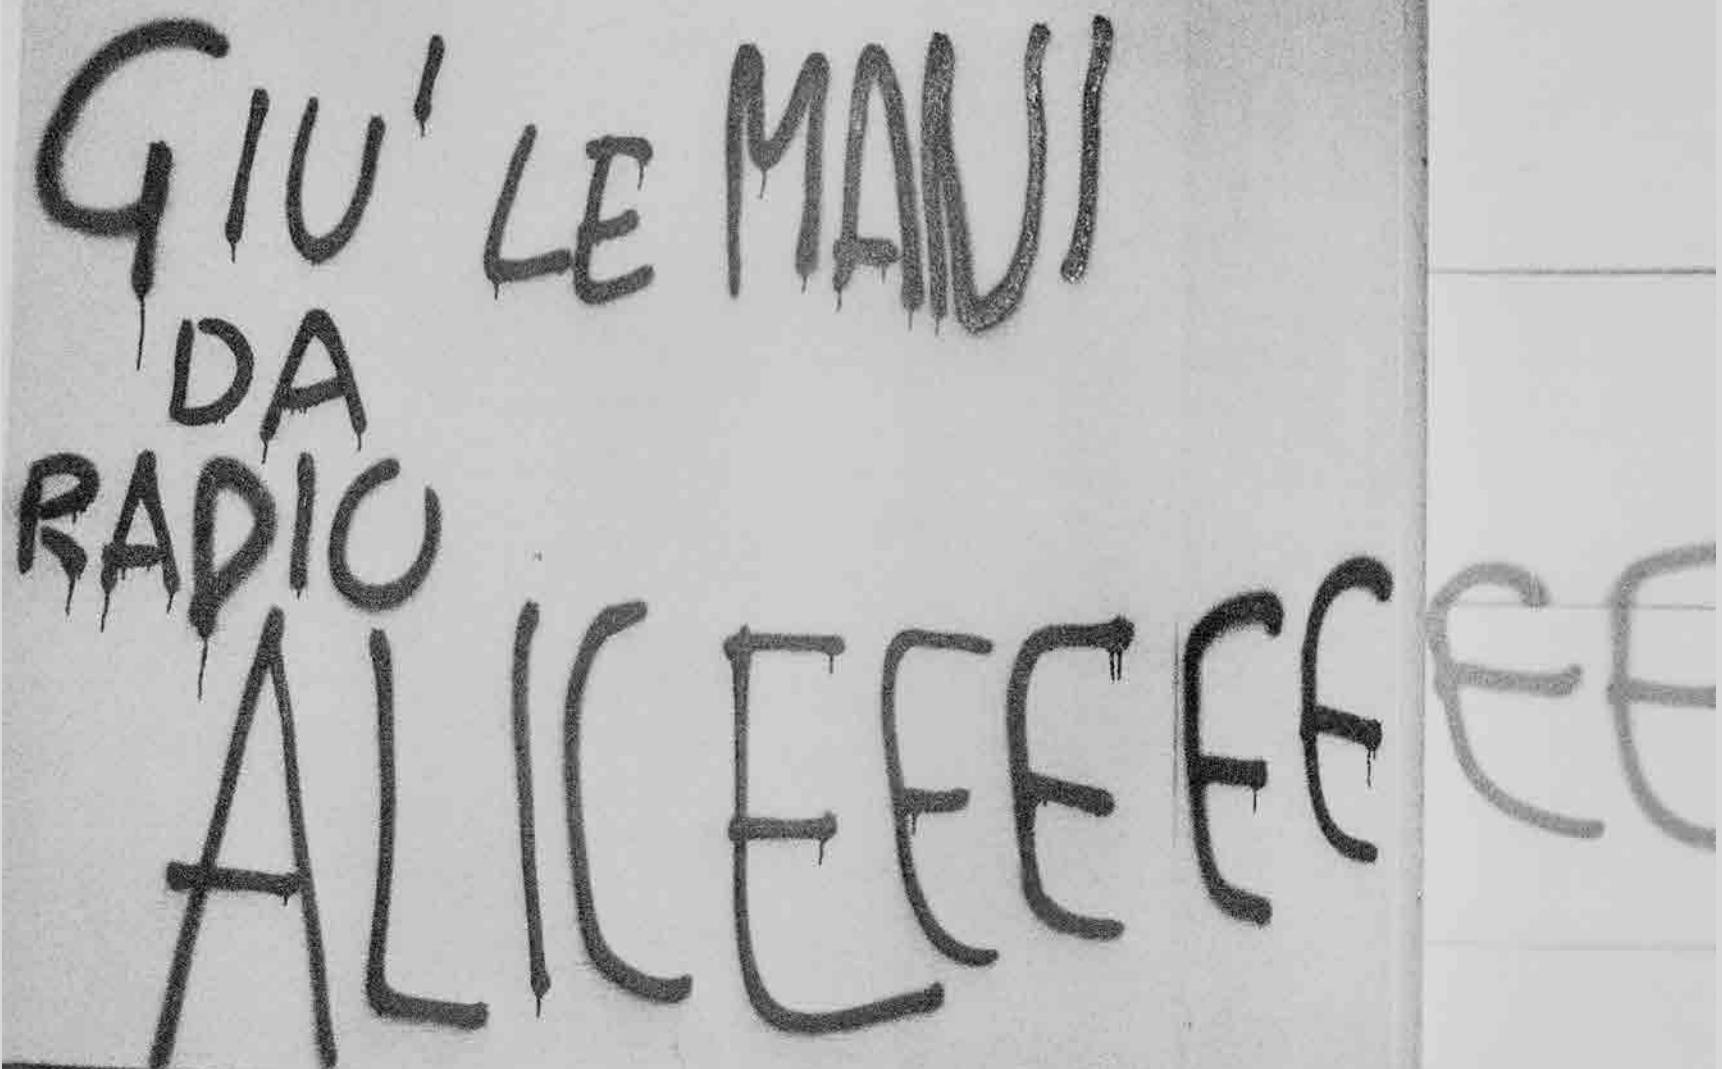 GIU' LE MANI
DA
RADIO
ALICEEEEEEE